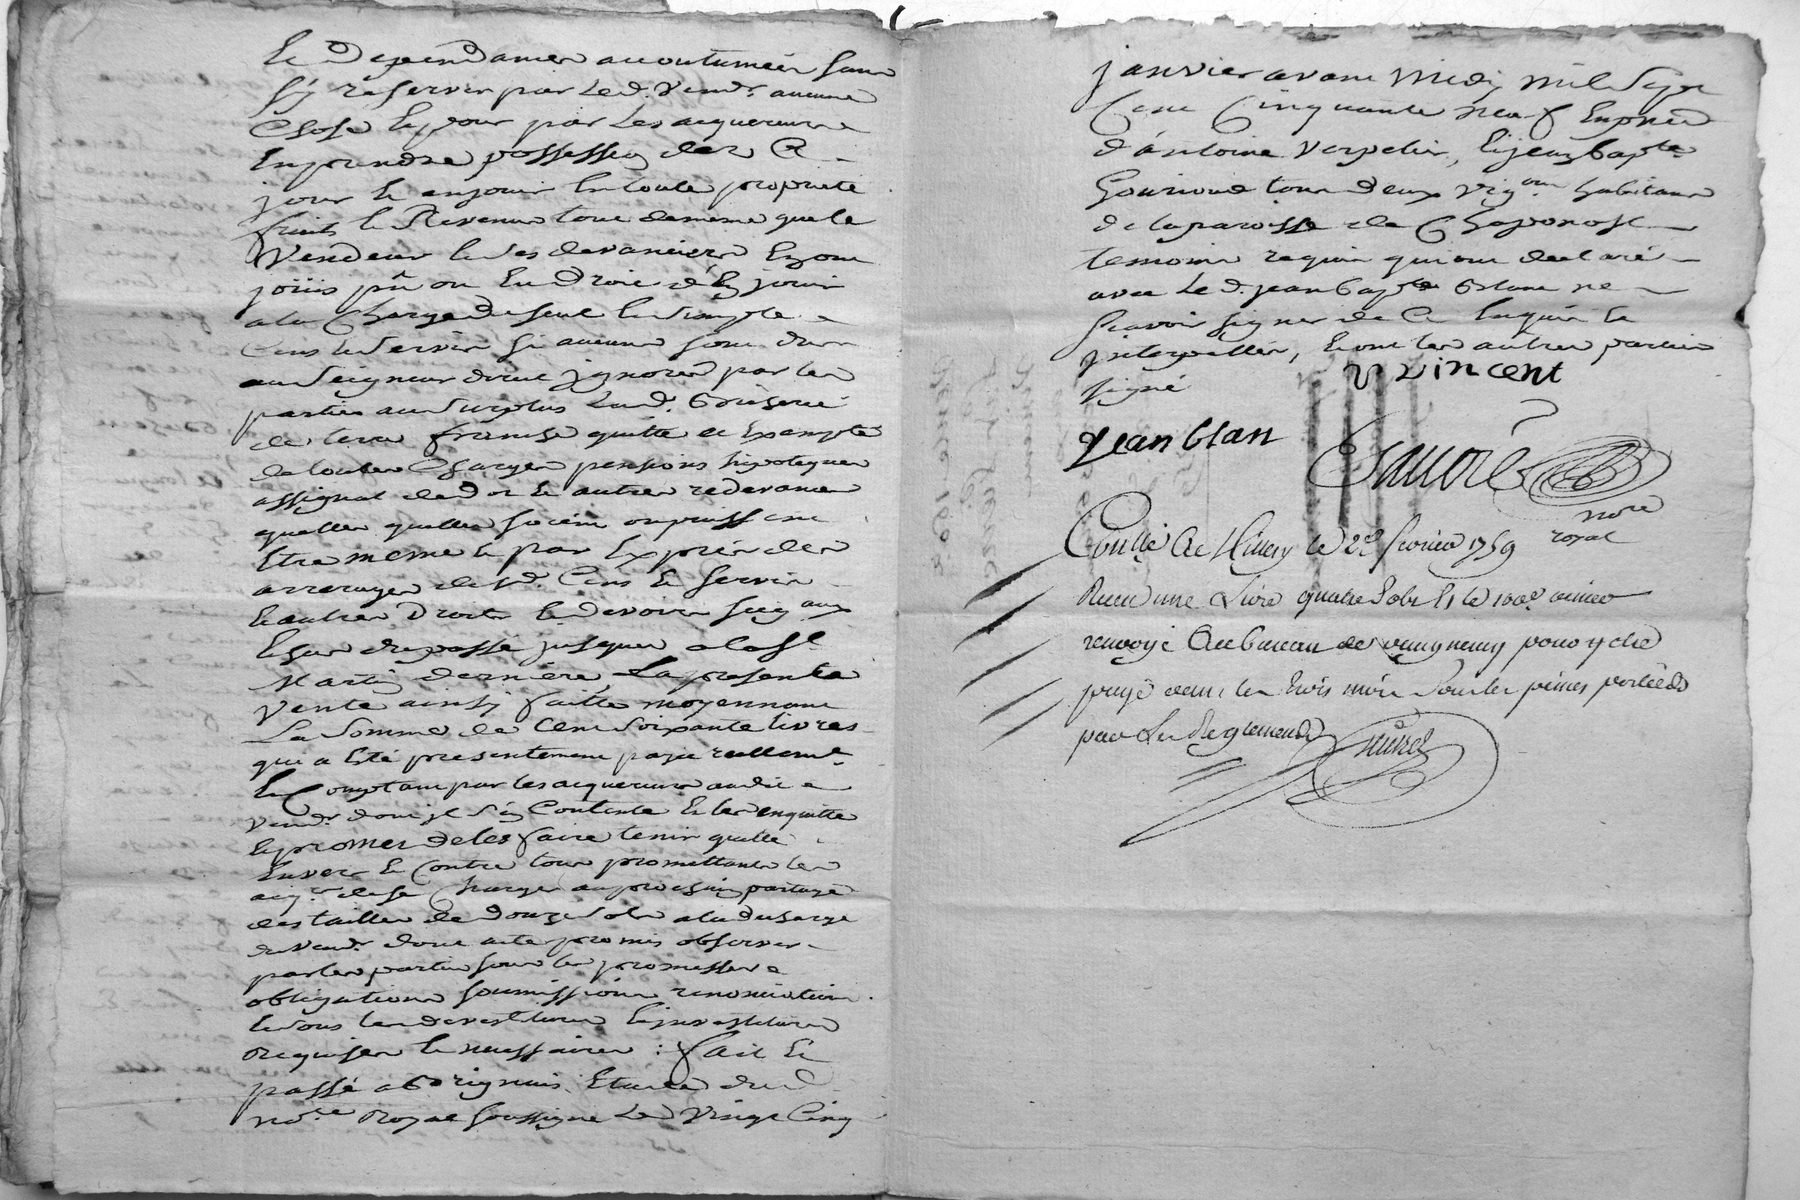 Et Dependances accoutumées sans
s'y reserver par led. vend.r aucune
Chose Et pour par les acquereurs
En prendre possession des Ce
jour Et en jouir En toute proprieté
fruits Et Revenus tout de meme que le
Vendeur Et ses devanciers En ont
joüis pû ou Eu Droit d'En jouir
a la Charge du seul Et simple
Cens Et servis si aucuns sont dus
au seigneur direct ignoré par les
parties au surplus Lad.
de terre franche quitte et Exempte
de toutes Charges pensions hipoteques
assignat de dot Et autres redevances
quelles quelles soient ou puissent
Etre meme Et par Exprès des
arrerages desd. Cens Et servis
Et autres Droits Et devoirs seig.aux
du passé jusques a la St
Martin derniere, La presente
Vente ainsy faitte moyennant
La somme de Cent soixante livres
qui a Eté presentement payée reellem.t
Et Comptant par les acquereurs audit
vend.r dont il s'en Contente Et les en quitte
Et promet de les faire tenir quitte
Envers Et Contre tous promettants les
acq.rs de se Charger au prochain partage
des tailles de Douze sols a la décharge
du vend.r dont acte promis observer
par les parties sous les promesses
obligations soumissions renonciations
Et sous les devestitures Et investitures
Requises Et necessaires : fait Et
passé a Brignais Etude dud.
No.re Royal soussigné Le Vingt Cinq
janvier avant Midy Mil sept
Cent Cinquante neuf En presence
d'Antoine Verpelier, Et jean bapte
tous deux vig.ons habitans
de la paroisse de Chaponost
temoins requis qui ont declaré
avec Led. jean bapte Blanc ne
sçavoir signer de Ce Enquis Et
interpellés, Et ont les autres parties
signé
Vincent
jean blan
nore
royal
Controllé A St Genis Le 2e fevrier 1759
Reçu une Livre quatre sols Et le 100e denier
renvoyé Au bureau de pour y etre
payé dans les trois mois sous les peines portées
par Les Reglements